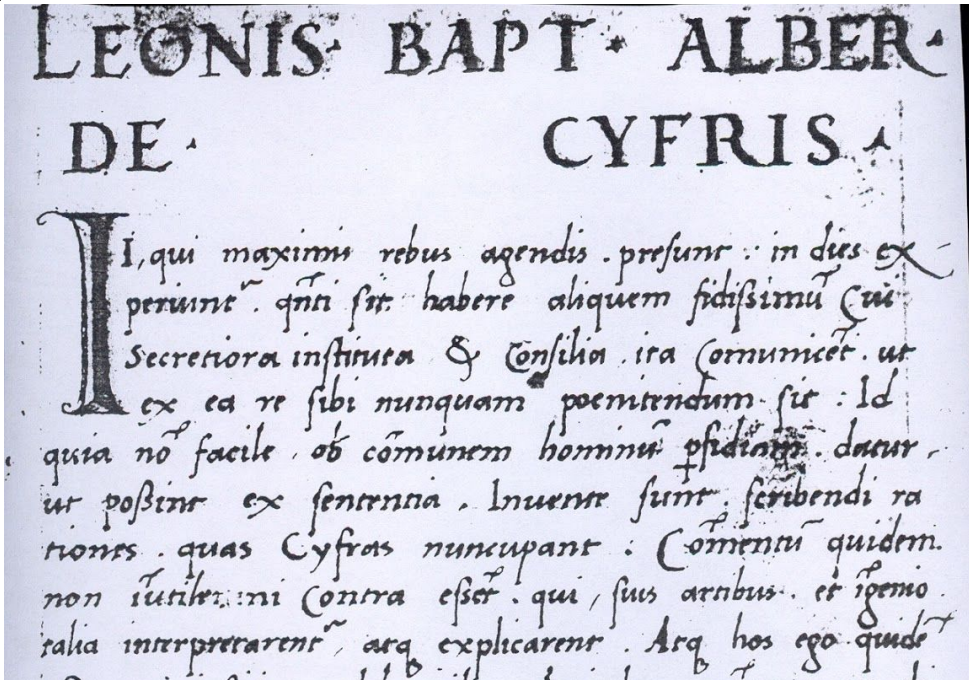 LEONIS · BAPT · ALBER ·
DE · CYFRIS ·
II, qui maximis rebus agendis . presunt : in dies ex-
periunt᷑ . qñti sit habere aliquem fidissimū Cui
Secretiora instituta & Consilia . ita Comunicēt . ut
ex ea re sibi nunquam poenitendum sit : Id
quia nō facile . ob cōmunem hominū ꝑfidiam . datur ,
ut poßint ex sententia . Invente sunt . scribendi ra
tiones . quas Cyfras nuncupant : Cōmentū quidem
non īutile: ni Contra essēt . qui , suis artibus . et īgenio
talia interpretarent᷑ , atq explicarent . Atq hos ego quidē